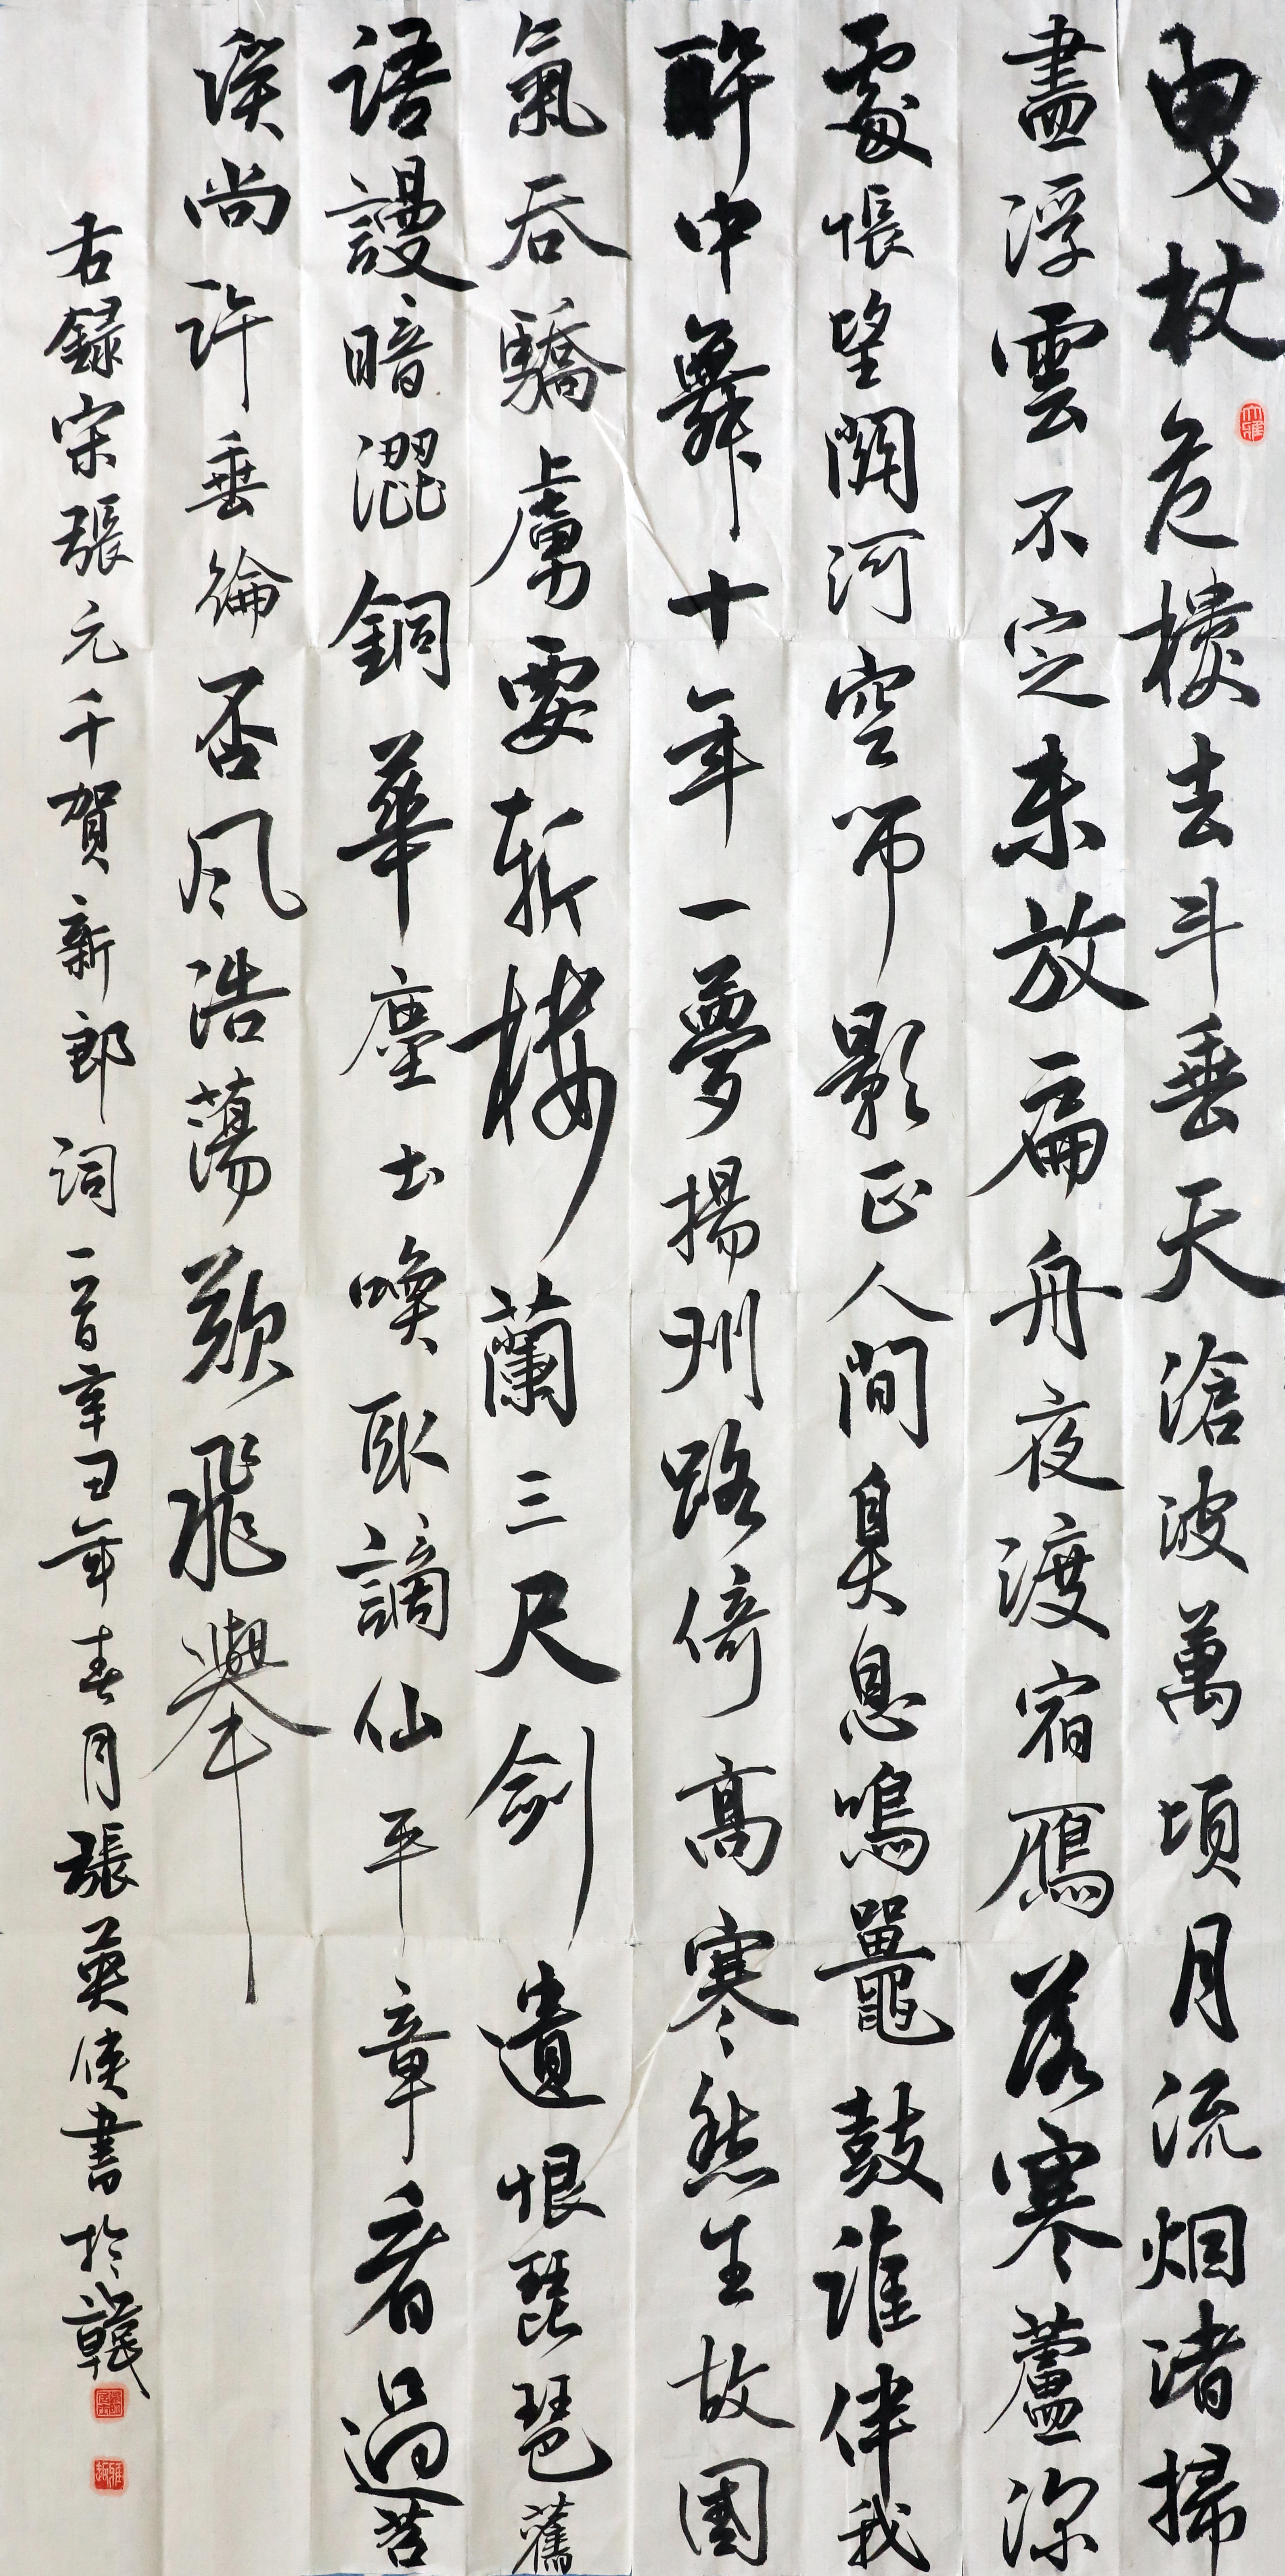 曳杖危樓去斗垂天滄波萬頃月流烟渚掃
盡浮雲不定未放扁舟夜渡宿鴈落寒蘆深
處悵望關河空吊影正人間臭息鳴鼉鼓誰伴我
醉中舞十年一夢揚州路倚高寒愁生故國
氣吞驕虜要斬樓蘭三尺劍遺恨琵琶舊
語謾暗澀銅華塵土喚取謫仙平章看過苕
溪尚許垂綸否風浩蕩欲飛舉
右錄宋張元千賀新郎詞一首辛丑年春月張英俠書於